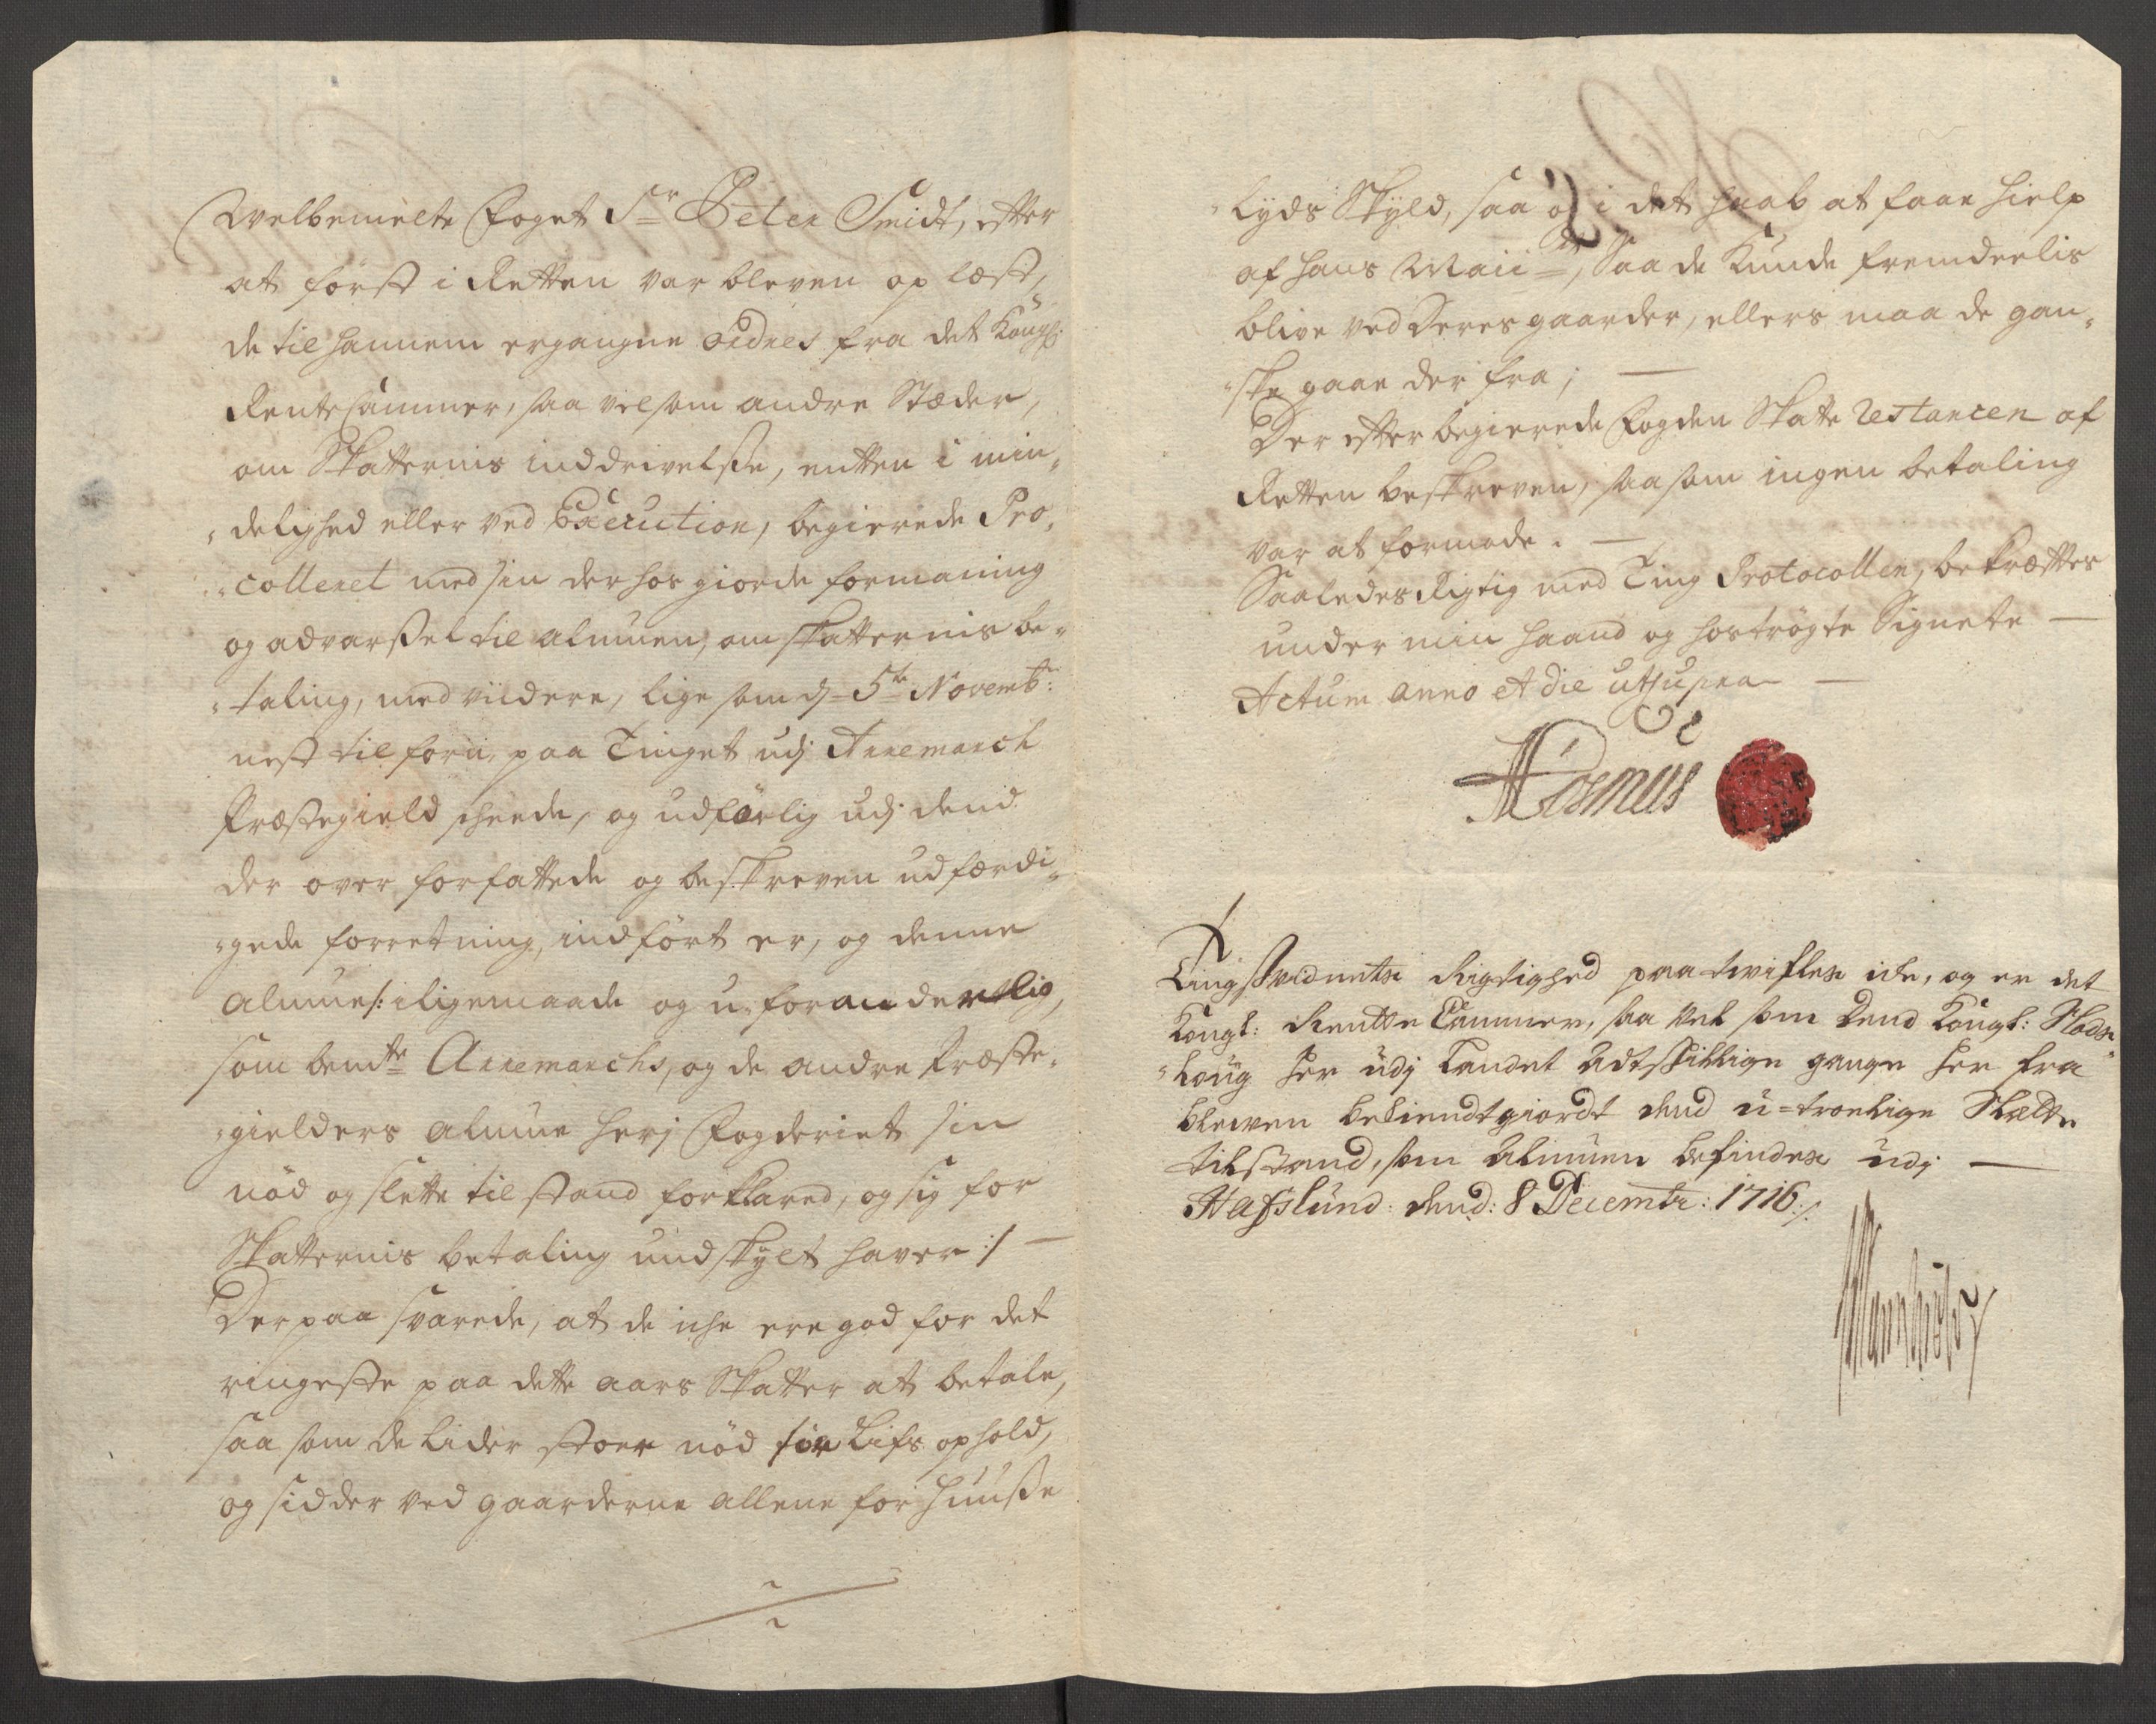 Welbemelte Foget Sr Peter Smidt, efter
at først i Retten var bleven op læst,
de til hannem ergangne ordres fra det Kongl:
Rentekammer, saa vel som andre Stæder,
om Skatternis inddrivelsse, entten i min„
„delighed eller ved Execution, begierede Pro„
„colleret med sin der hos giorde formaning
og advarssel til almuen, om skatternis be„
„taling, med viidere, lige som d: 5te Novemb:
nest tilforn, paa Tinget udj Arremarch
Præstegield skeede, og udførlig udj dend
der over forfattede og beskreven udfærdi„
„gede forretning, indført er, og denne
Almue /: iligemaade og u-foranderlig,
som bemte Arremarchs, og de andre Præste„
„gielders almue herj Fogderiet sin
nød og slette tilstand forklared, og sig for
Skatternis betaling undskylt haver :/ —
Der paa svarede, at de iche ere god for det
ringeste paa dette aars Skatter at betale,
saa som de lider stoer nød for Lifs ophold,
og sidder ved gaarderne allene for Huusse
„lyds Skyld, saa og i det haab at faae hielp
af hans Maiits, saa de kunde fremdeelis
blive ved deres gaarder, ellers maa de gan„
„ske gaae der fra; —
Der efter begierede Fogden Skatte Restancen af
Retten beskreven, saasom ingen betaling
var at formode. —
Saaledes Rigtig med Ting Protocollen, bekræfter
under min haand og hostrøgte Signete —
Actum anno et die utsupra —
Tingsvidnets Rigtighed paa twifles iche, og er det
Kongl: Rentte Cammer, saa vel som dend Kongl: Slods„
„loug her udj Landet adtskillige gange her fra
blewen bekiendtgiordt dend u=troelige Slette
tilstand, som Almuen befindes udj —
Hafslund: dend: 8 Decembr: 1716 :/: